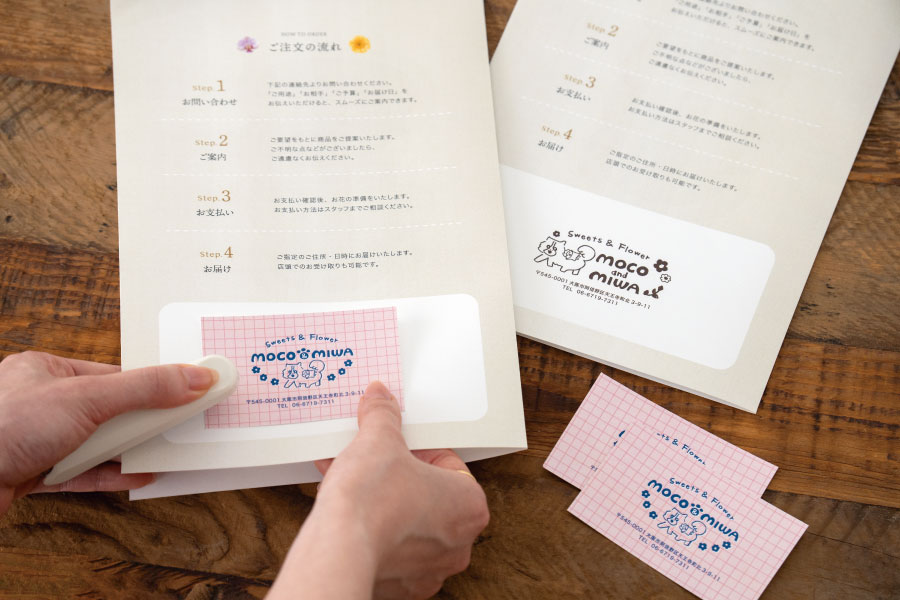 HOW TO ORDER
ご注文の流れ
Step.1
お問い合わせ
下記の連絡先よりお問い合わせください。
「ご用途」「お相手」「ご予算」「お届け日」を
お伝えいただけると、スムーズにご案内できます。
Step.2
ご案内
ご要望をもとに商品をご提案いたします。
ご不明な点などがございましたら、
ご遠慮なくお伝えください。
Step.3
お支払い
お支払い確認後、お花の準備をいたします。
お支払い方法はスタッフまでご相談ください。
Step.4
お届け
ご指定のご住所・日時にお届けいたします。
店頭でのお受け取りも可能です。
Sweets & Flower
MOCO & MIWA
〒545-0001 大阪市阿倍野区天王寺町北 3-9-11
TEL 06-6719-7311
「ご用途」「お相手」「ご予算」「お届け日」を
お伝えいただけると、スムーズにご案内できます。
Step.2
ご案内
ご要望をもとに商品をご提案いたします。
ご不明な点などがございましたら、
ご遠慮なくお伝えください。
Step.3
お支払い
お支払い確認後、お花の準備をいたします。
お支払い方法はスタッフまでご相談ください。
Step.4
お届け
ご指定のご住所・日時にお届けいたします。
店頭でのお受け取りも可能です。
Sweets & Flower
MOCO
and
MIWA
〒545-0001 大阪市阿倍野区天王寺町北 3-9-11
TEL 06-6719-7311
Sweets & Flower
MOCO & MIWA
〒545-0001 大阪市阿倍野区天王寺町北 3-9-11
TEL 06-6719-7311